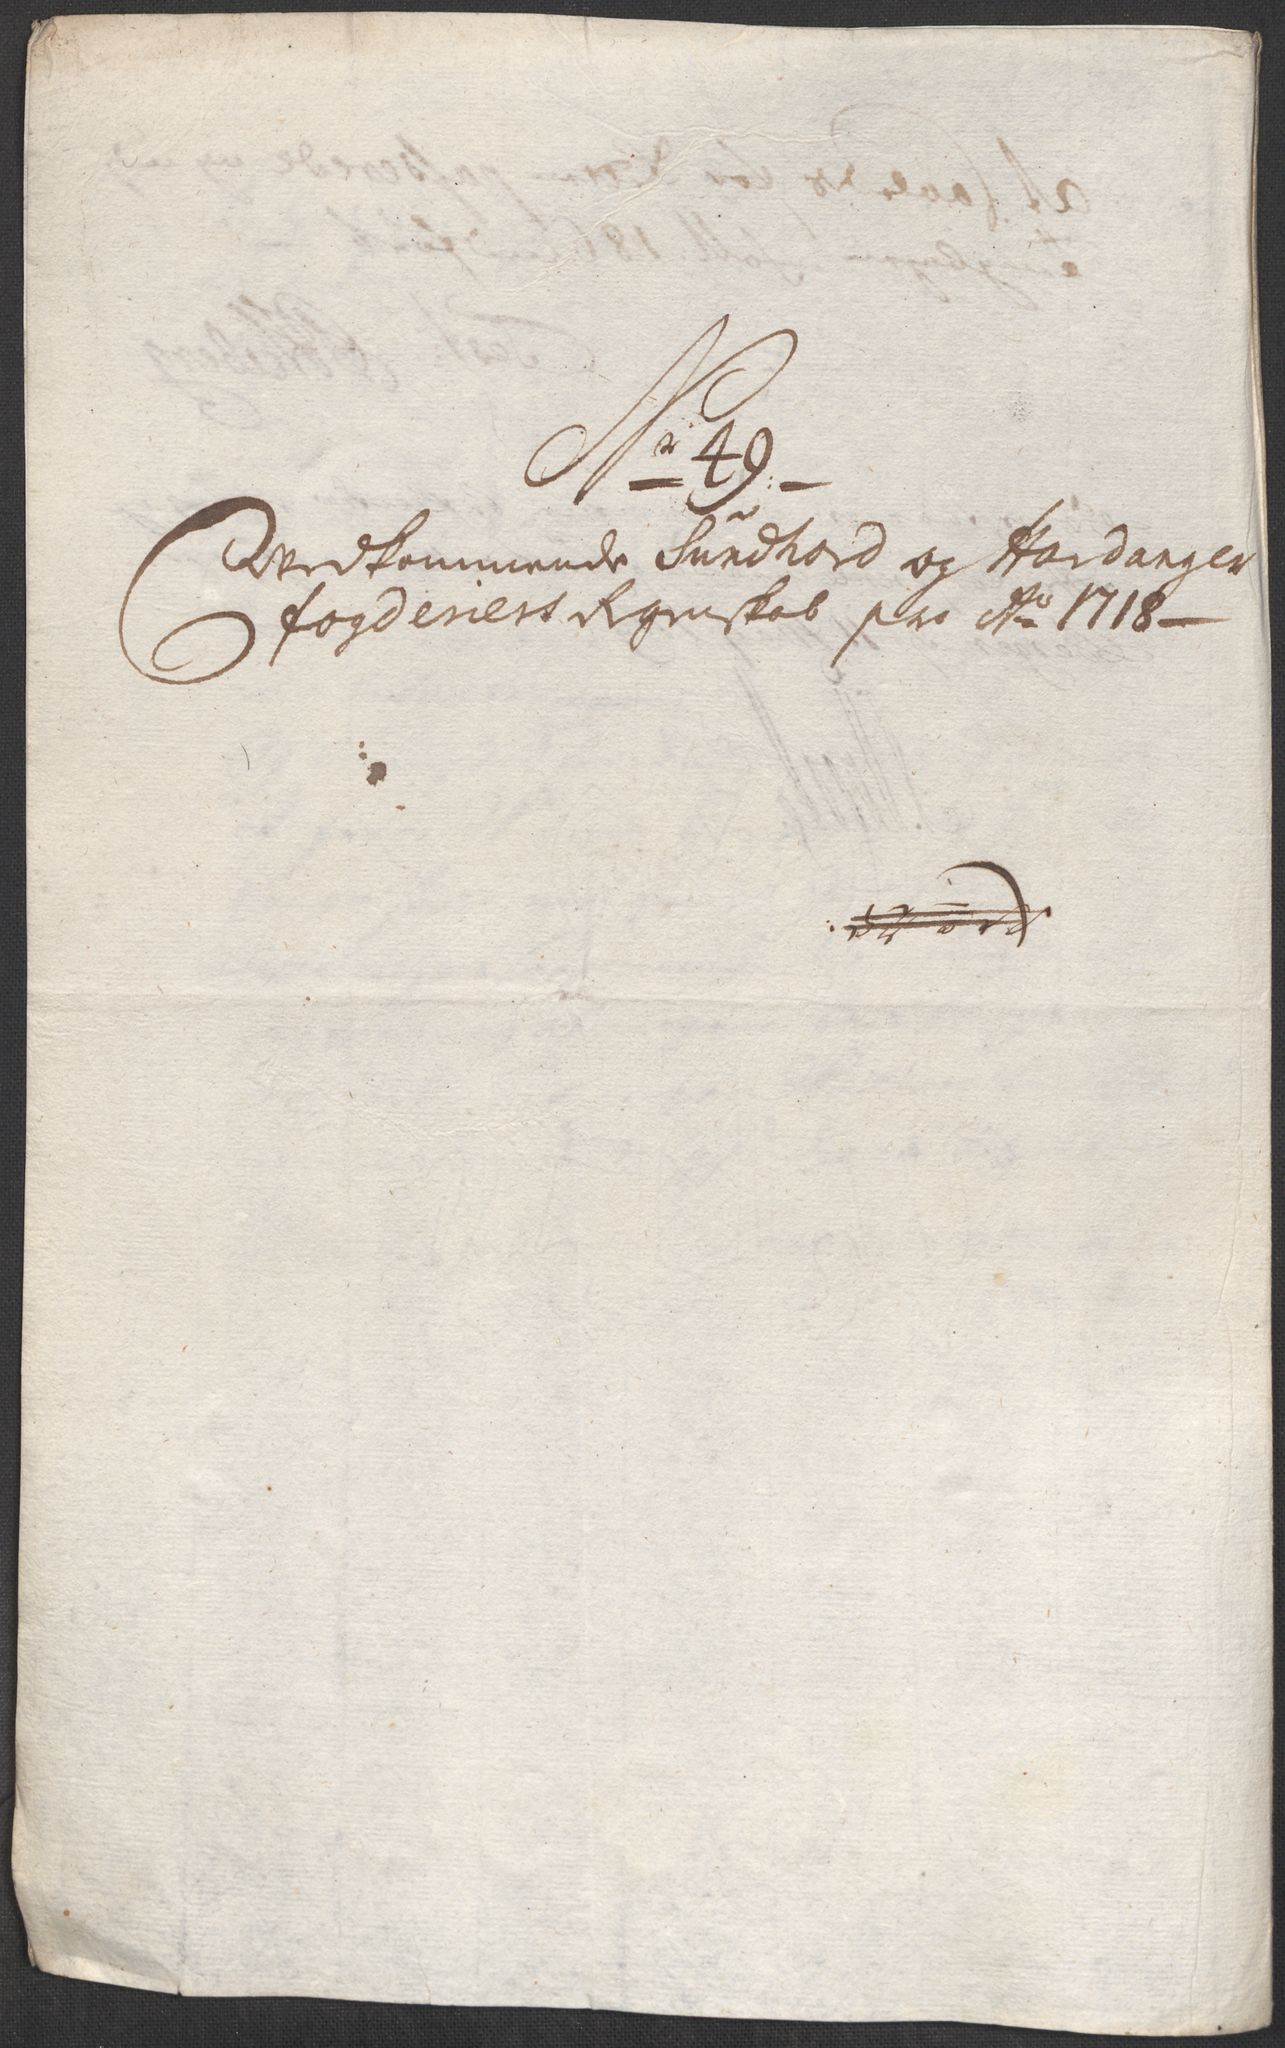 No 49.
Vedkommende Sundhord og Hardanger
fogderiers Regnskab pro Ao 1718